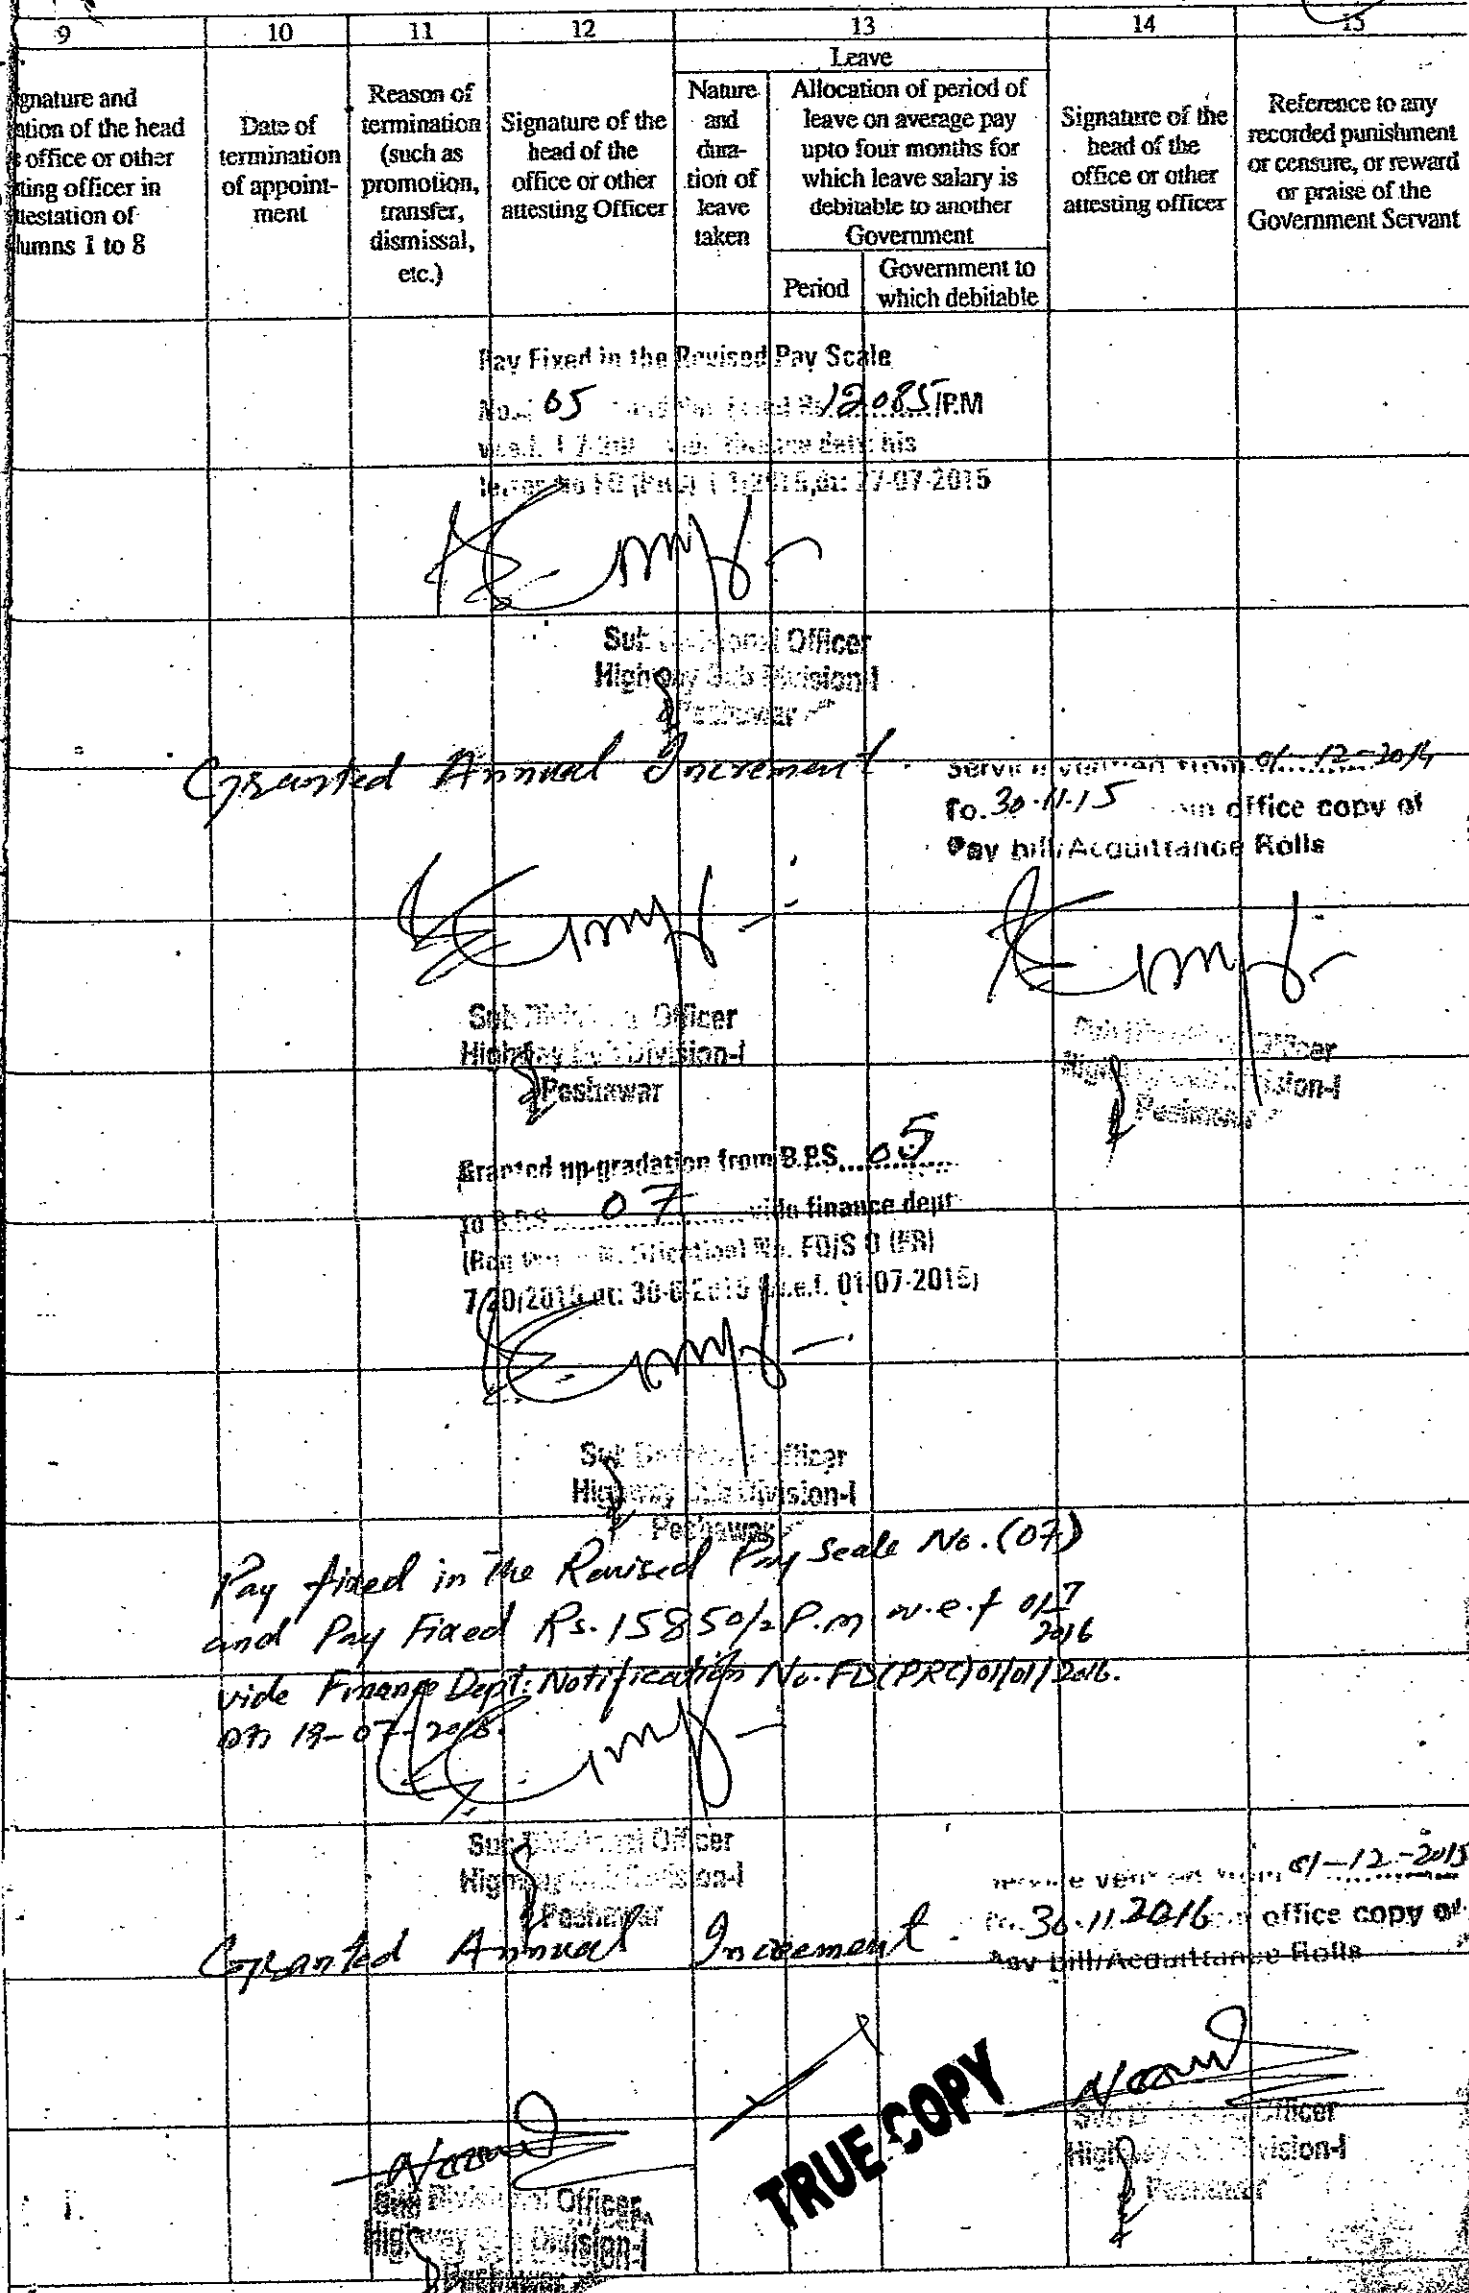 9 10 11 12 13 14 15
gnature and
ation of the head
office or other
sting officer in
testation of
lumns 1 to 8
Date of
termination
of appoint-
ment
Reason of
termination
(such as
promotion,
transfer,
dismissal,
etc.)
Signature of the
head of the
office or other
attesting Officer
Leave
Nature
and
dura-
tion of
leave
taken
Allocation of period of
leave on average pay
upto four months for
which leave salary is
debitable to another
Government
Period
Government to
which debitable
Signature of the
head of the
office or other
attesting officer
Reference to any
recorded punishment
or censure, or reward
or praise of the
Government Servant
Pay Fixed in the Revised Pay Scale
No. 05 12085/P.M
his
27-07-2015
Sub Divisional Officer
Highway Sub Division-I
Peshawar
Granted Annual Increment.
01-12-2014
To. 30-11-15 office copy of
Pay bill/Acquittance Rolls
Sub Divisional Officer
Highway Sub Division-I
Peshawar
Sub Divisional Officer
Highway Sub Division-I
Peshawar
Granted up-gradation from B.P.S. 05
to B.P.S. 07 vide finance dept
No. FD/S O (FR)
7/20/2015 (w.e.f. 01-07-2015)
Sub Divisional Officer
Highway Sub Division-I
Peshawar
Pay fixed in The Revised Pay Scale No. (07)
and Pay Fixed Rs. 15850/= P.m w.e.f 01-7
2016
vide Finance Dept: Notification No. FD(PRC)01/01/2016.
Sub Divisional Officer
Highway Sub Division-I
Peshawar
01-12-2015
To. 30-11-2016 office copy of
Pay bill/Acquittance Rolls
Granted Annual Increment.
TRUE COPY
Sub Divisional Officer
Highway Sub Division-I
Peshawar
Sub Divisional Officer
Highway Sub Division-I
Peshawar